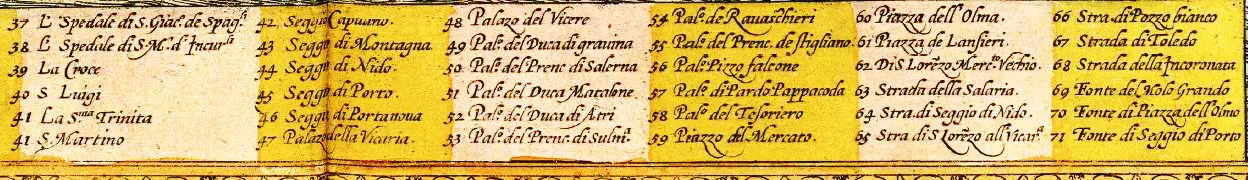 37 L' Spedale di S. Giac. de Spagli
38 L' Spedale di S. Ma. d' Incurli
39 La Croce
40 S Luigi
41 La Sma Trinita
41 S. Martino
42 Seggio Capuano.
43 Seggo di Montagna
44 Seggo di Nido.
45 Seggo di Porto.
46 Seggo di Portanova
47 Palazo della Vicaria.
48 Palazo del Vicere
49 Pal. del Duca di gravina
50 Pal. del Prenc. di Salerna
51 Pal. del Duca Matalone.
52 Pal. del Duca di Atri
53 Pal. del Prenc. di Sulm.
54 Pal. de Ravaschieri
55 Pal. del Prenc. de stigliano.
56 Pal. Pizzo falcone
57 Pal. di Pardo Pappacoda
58 Pal. del Tesoriero
59 Piazzo del Mercato.
60 Piazza dell' Olma.
61 Piazza de Lansieri.
62 Di S Lorēzo Merc. Vechio.
63 Strada della Salaria.
64 Stra. di Seggio di Nido.
65 Stra di S Lorēzo all Vicar.
66 Stra. di Pozzo bianco
67 Strada di Toledo
68 Strada della Incoronata
69 Fonte del Molo Grando
70 Fonte di Piazza dell' Olmo
71 Fonte di Seggio di Porto